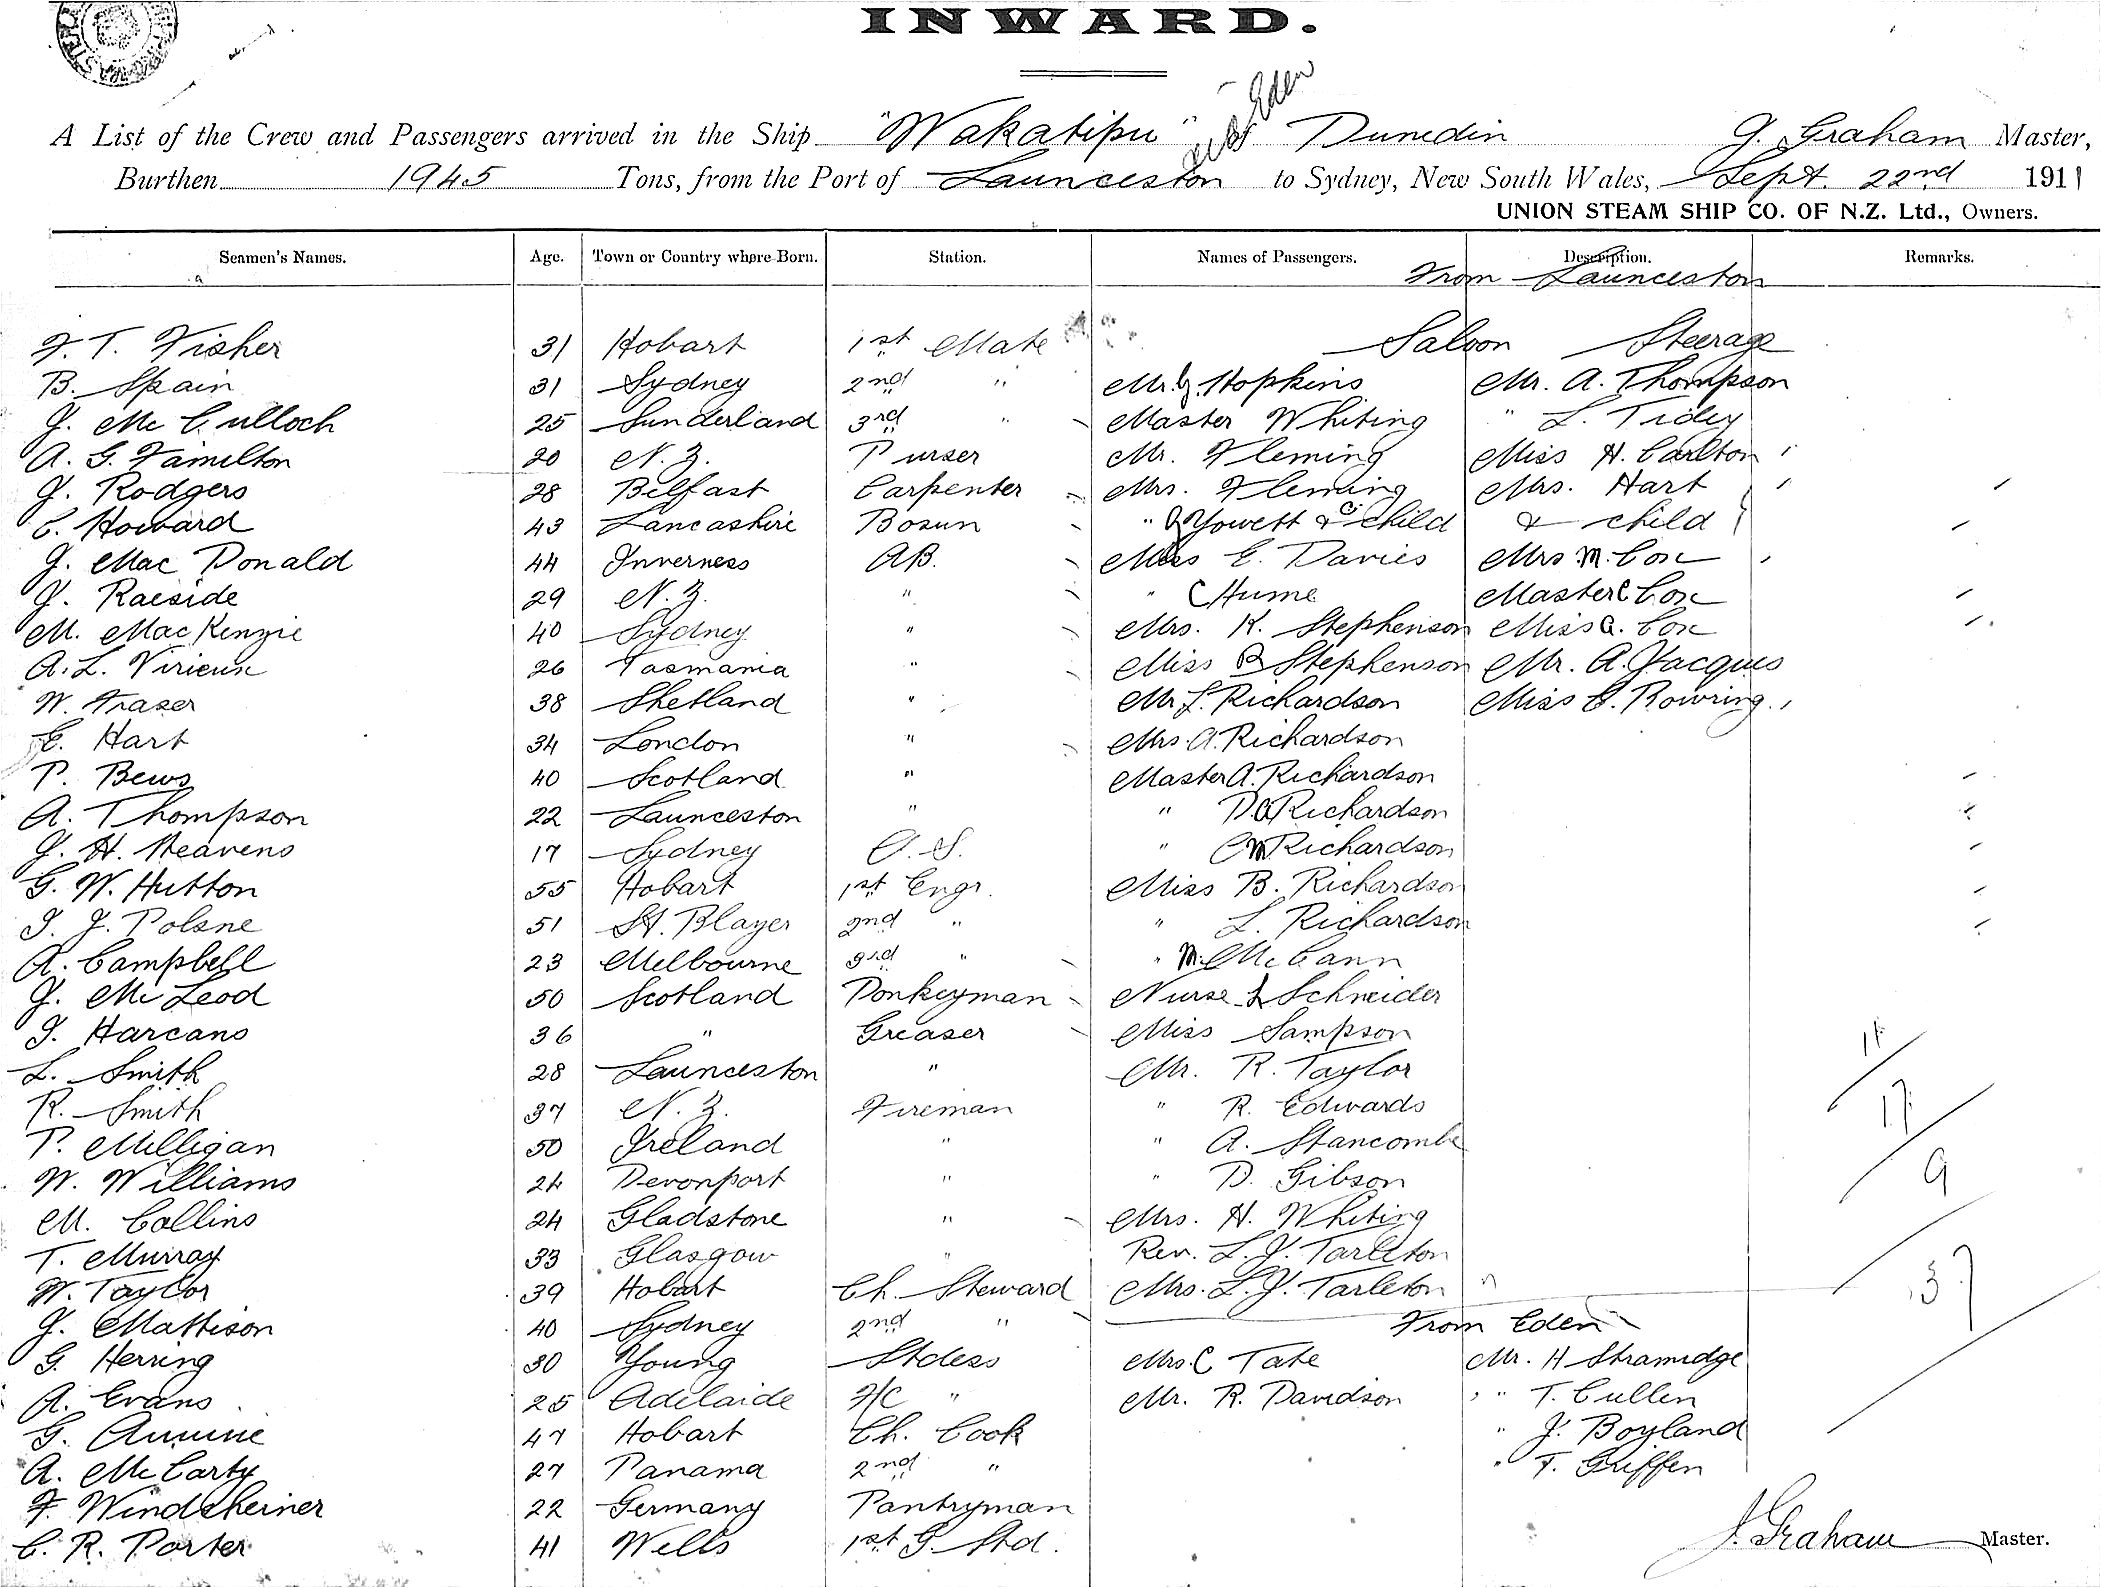 INWARD.
A List of the Crew and Passengers arrived in the Ship "Wakatipu" of Dunedin J. Graham Master,
Eden
Burthen 1945 Tons, from the Port of Launceston to Sydney, New South Wales, Sept. 22nd 1911
UNION STEAM SHIP CO. OF N.Z. Ltd., Owners.
Seamen's Names. Age. Town or Country where Born. Station. Names of Passengers. Description. Remarks.
From Launceston
F. T. Fisher 31 Hobart 1st Mate Saloon Steerage
B. Spain 31 Sydney 2nd " Mr. J. Hopkins Mr. A. Thompson
J. McCulloch 25 Sunderland 3rd " Master Whiting " L. Tidey
A. G. Familton 20 N.Z. Purser Mr. Fleming Miss H. Carlton
J. Rodgers 28 Belfast Carpenter Mrs. Fleming Mrs. Hart
C. Howard 43 Lancashire Bosun " Yowett & child & child
J. MacDonald 44 Inverness AB. Miss E. Davies Mrs M. Cox
J. Raeside 29 N.Z. " " C Hume Master C Cox
M. MacKenzie 40 Sydney " Mrs. K. Stephenson Miss A. Cox
A. L. Virieux 26 Tasmania " Miss B Stephenson Mr. A. Jacques
W. Fraser 38 Shetland " Mr L. Richardson Miss C. Rowring
E. Hart 34 London " Mrs. A. Richardson
P. Bews 40 Scotland " Master A. Richardson
A. Thompson 22 Launceston " " D.A Richardson
J. H. Heavens 17 Sydney O.S. " C M Richardson
G. W. Hutton 55 Hobart 1st Engr. Miss B. Richardson
J. J. Polsne 51 St. Blayer 2nd " " L. Richardson
A. Campbell 23 Melbourne 3rd " " M. McCann
J. McLeod 50 Scotland Donkeyman Nurse Schneider
J. Harcans 36 " Greaser Miss Sampson
L. Smith 28 Launceston " Mr. R. Taylor
R. Smith 37 N.Z. Fireman " R. Edwards
P. Milligan 50 Ireland " " A. Stancombe
W. Williams 24 Devonport " " D. Gibson
M. Collins 24 Gladstone " Mrs. H. Whiting
T. Murray 33 Glasgow " Rev. L. J. Tarleton
W. Taylor 39 Hobart Ch. Steward Mrs. L. J. Tarleton
J. Mattison 40 Sydney 2nd " From Eden
G. Herring 30 Young Stdess Mrs. C Tate Mr. H Stramidge
A. Evans 25 Adelaide F/C " Mr. R. Davidson " T. Cullen
G. 47 Hobart Ch. Cook " J. Boyland
A. McCarty 27 Panama 2nd " " T. Griffen
F. Windsheiner 22 Germany Pantryman
C. R. Porter 41 Wells 1st G. Std.
11
17
9
37
J. Graham Master.